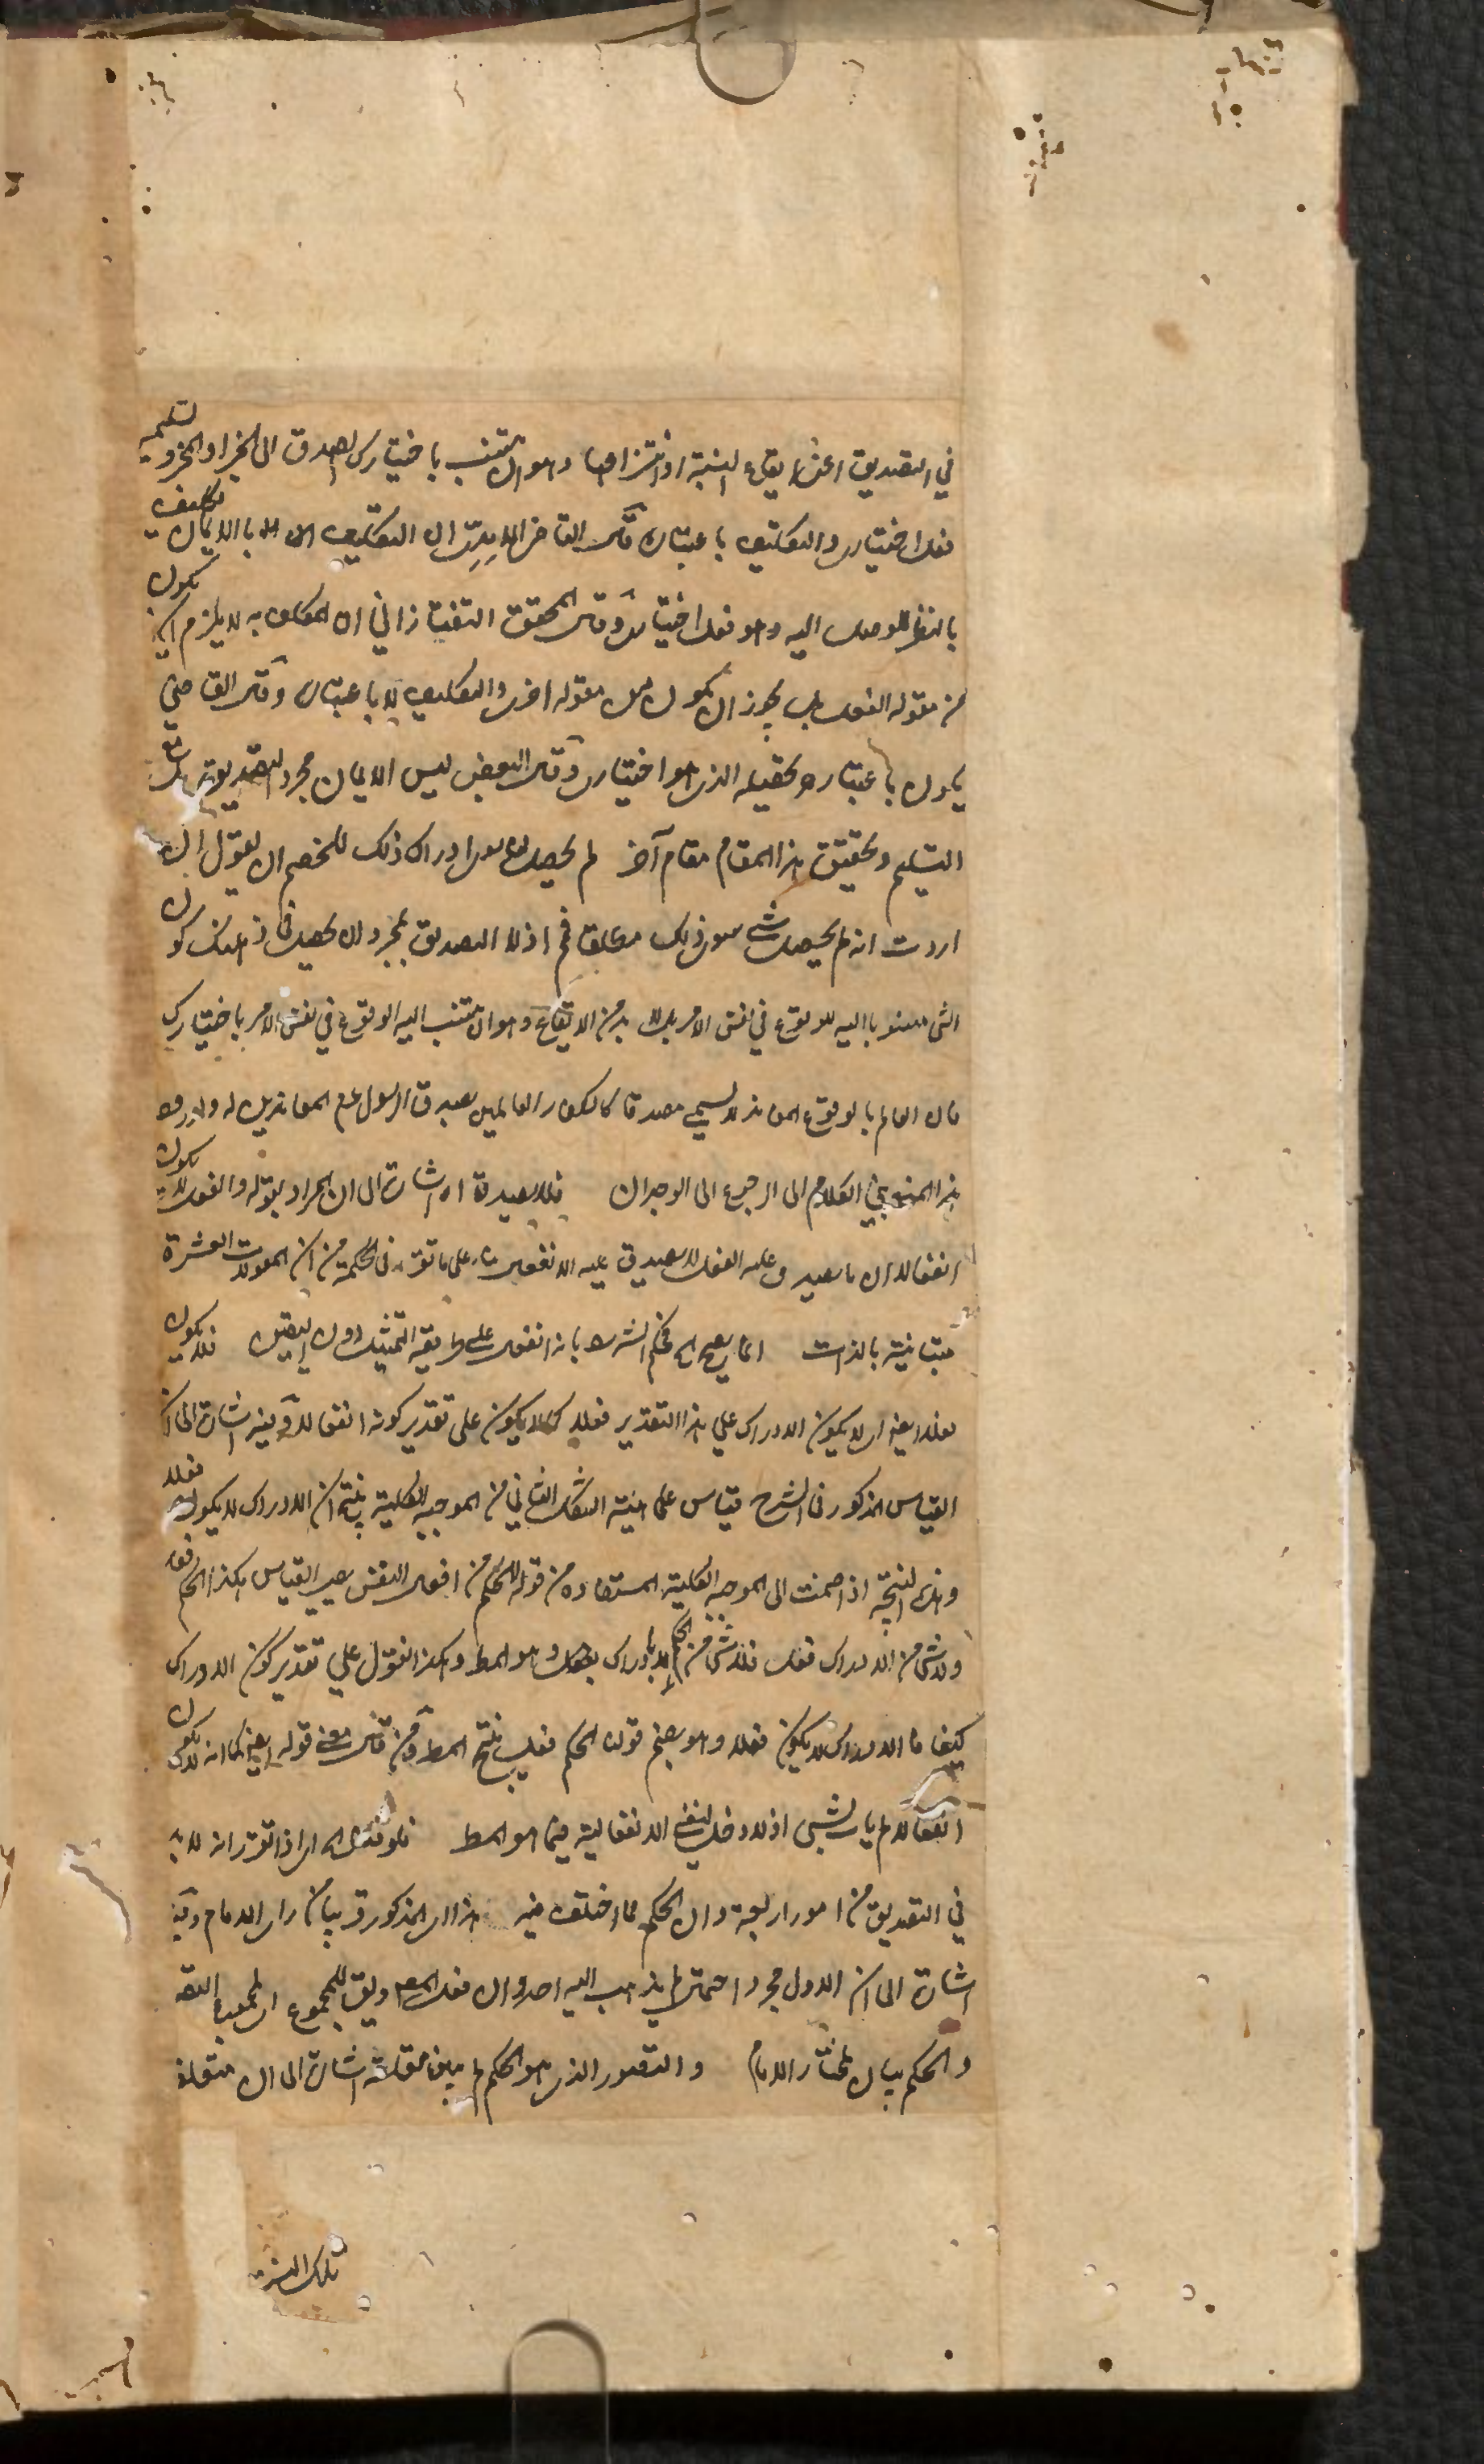 في التصديق اعني ايقاع النسبة او انتزاعها وهو ان تنسب باختيارك الصدق الى الخبر او المخبر وتسلمه
فعل اختياري والتكليف باعتباره وقال القاضي الآمدي ان التكليف بالايمان تكليف
بالنظر الموصل اليه وهو فعل اختياري وقال المحقق التفتازاني ان المكلف به لا يلزم ان يكون
من مقولة الفعل بل يجوز ان يكون من مقولة اخرى والتكليف باعتبار وقال القاضي
يكون باعتبار تحصيله الذي هو اختياري وقال البعض ليس الايمان مجرد التصديق بل مع
التسليم وتحقيق هذا المقام مقام آخر لم يحصل لنا سوى ادراك ذلك للخصم ان يقول ان
اردت انه لم يحصل شيء سوى ذلك مطلقا فم اذ لا التصديق بمجرد ان يحصل في ذهنك كون
الشيء منسوبا اليه للوقوع في نفس الامر بل لا بد من الايقاع وهو ان تنسب اليه الوقوع في نفس الامر باختيارك
فان العالم بالوقوع المعاند لا يسمى مصدقا كالكفار العالمين بصدق الرسول عم المعاندين له
هذا المنع يجيء الكلام الى الرجوع الى الوجدان فلا يصدق اه اشارة الى ان المراد بقوله والفعل لا يكون
انفعالا ان ما يصدق عليه الفعل لا يصدق عليه الانفعال بناء على ما تقرر في الحكمة من ان المقولات العشرة
متباينة بالذات انما يصح اه فحكم الشريف بانه انفعال على طريقة التمثيل دون اليقين فلا يكون
فعلا يعني ان لا يكون الادراك على هذا التقدير فعلا كما لا يكون على تقدير كونه انفعالا وفيه اشارة الى ان
القياس المذكور في الشرح قياس على هيئة الشكل الثاني من الموجبة الكلية ينتج ان الادراك لا يكون فعلا
وهذه النتيجة اذا ضمت الى الموجبة الكلية المستفادة من قوله الحكم من افعال النفس يصير القياس هكذا الحكم فعل
ولا شيء من الادراك بفعل فلا شيء من الحكم بادراك وهو المط وهكذا نقول على تقدير كون الادراك
كيفا فالادراك لا يكون فعلا وهو بضم قولنا الحكم فعل ينتج المط ومن قال معنى قوله يعني كما انه لا يكون
انفعالا لم يأت بشيء اذ لا دخل لنفي الانفعالية فيما هو المط فلو قلنا اه اي اذا تقرر انه لا بد
في التصديق من امور اربعة وان الحكم مما اختلف فيه هذا اي المذكور قريبا من رأي الامام وفيه
اشارة الى ان الاول مجرد احتمال لم يذهب اليه احد وان فعل المص ويق للمجموع اي لمجموع التصور
والحكم بيان لمختار الامام والتصور الذي هو الحكم لم يبين مقابله اشارة الى ان مقابله
تلك النسبة